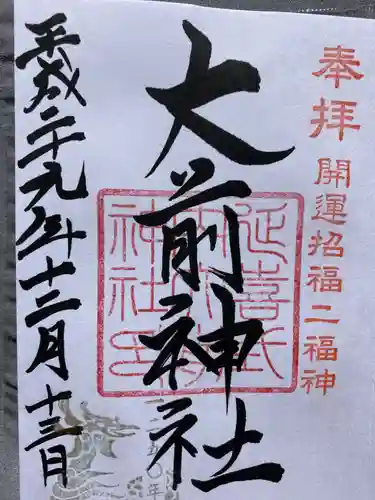 奉拝
開運招福二福神
大前神社
延喜式
内大前
神社印
平成二十九年十二月十三日